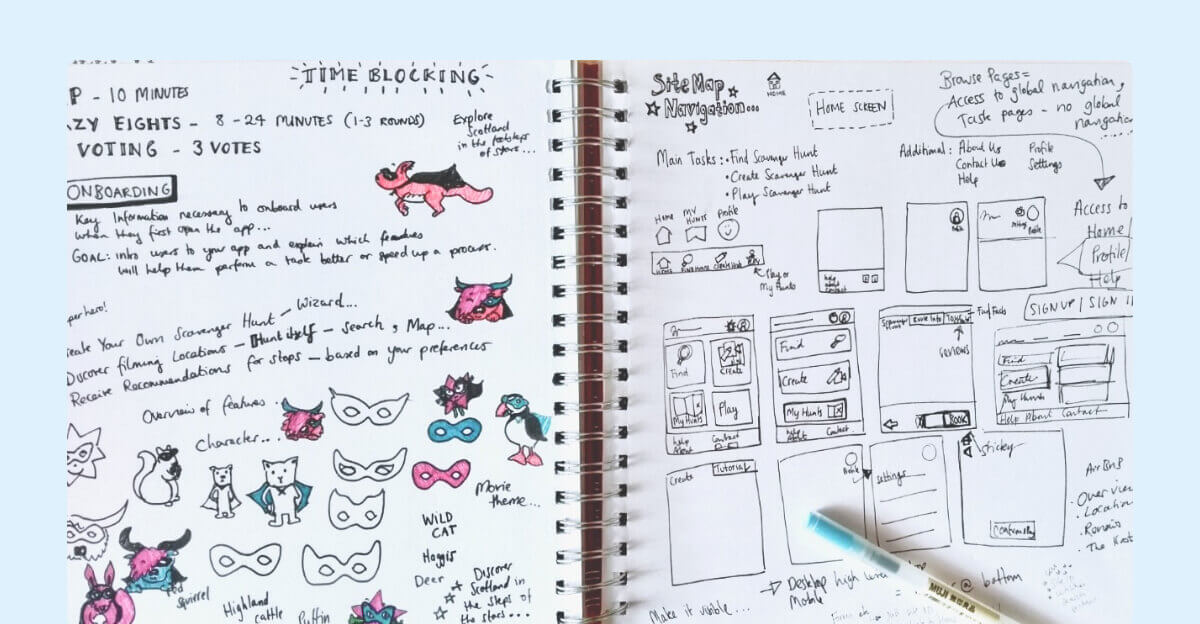 TIME BLOCKING
P - 10 MINUTES
ZY EIGHTS - 8-24 MINUTES (1-3 ROUNDS)
VOTING - 3 VOTES
Explore
Scotland
in the footsteps
of stars...
ONBOARDING
Key Information necessary to onboard users
when they first open the app...
GOAL: intro users to your app and explain which features
will help them perform a task better or speed up a process.
perhero!
Create Your Own Scavenger Hunt - Wizard...
Discover Filming Locations - Hunt itself - Search, Map...
Receive Recommendations for stops - based on your preferences
Overview of features.
Character...
Movie
theme...
WILD
CAT
Haggis
Deer
squirrel
Highland
cattle
Puffin
Discover
Scotland in
the steps of
the stars...
Site Map
Navigation...
HOME
HOME SCREEN
Browse Pages =
Access to global navigation,
Task pages - no global
navigation
Main Tasks: • Find Scavenger Hunt
• Create Scavenger Hunt
• Play Scavenger Hunt
Additional: About Us
Contact Us
Help
Profile
Settings
Home
My
Hunts
Profile
Play or
My Hunts
Access to
Home
Profile
Help
SIGN UP | SIGN I
Find
Create
My Hunts
Play
Help
About
Contact
Find
Create
My Hunts
Help
About
Contact
Route Info
Fun Facts
REVIEWS
BOOK
Find
Create
My Hunts
Help About Contact
Create
Tutorial
Profile
Settings
sticky
• Overview
• Location
• The Host
Desktop high level
Mobile
@ bottom
Make it visible...
MUJI